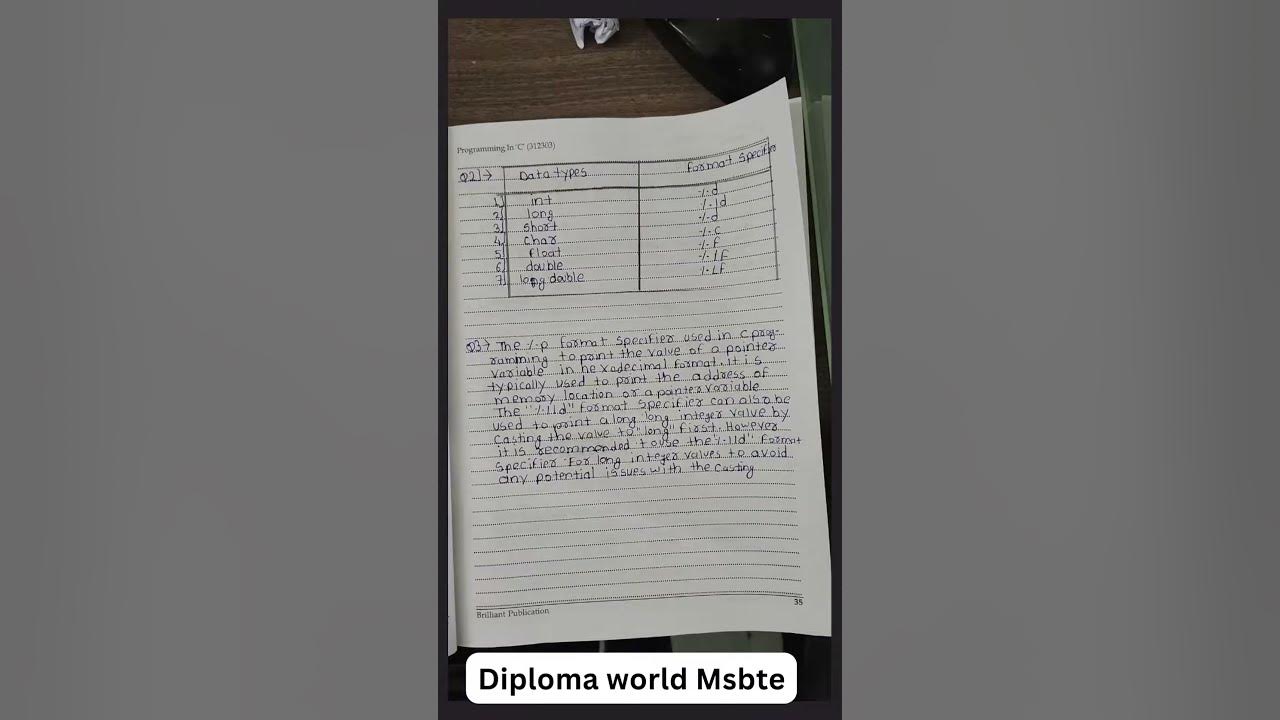 Programming In 'C' (312303)
Q2]→ Data types Format Specifier
1] int %d
2] long %ld
3] short %d
4] char %c
5] float %f
6] double %lf
7] long double %Lf
Q3→ The %p format specifier used in C prog-
ramming to print the value of a pointer
variable in hexadecimal format. it is
typically used to print the address of
memory location or a pointer variable
The "%lld" format specifier can also be
used to print a long long integer value by
casting the value to "long" first. However
it is recommended to use the "%lld" format
specifier for long integer values to avoid
any potential issues with the casting
Brilliant Publication 35
Diploma world Msbte